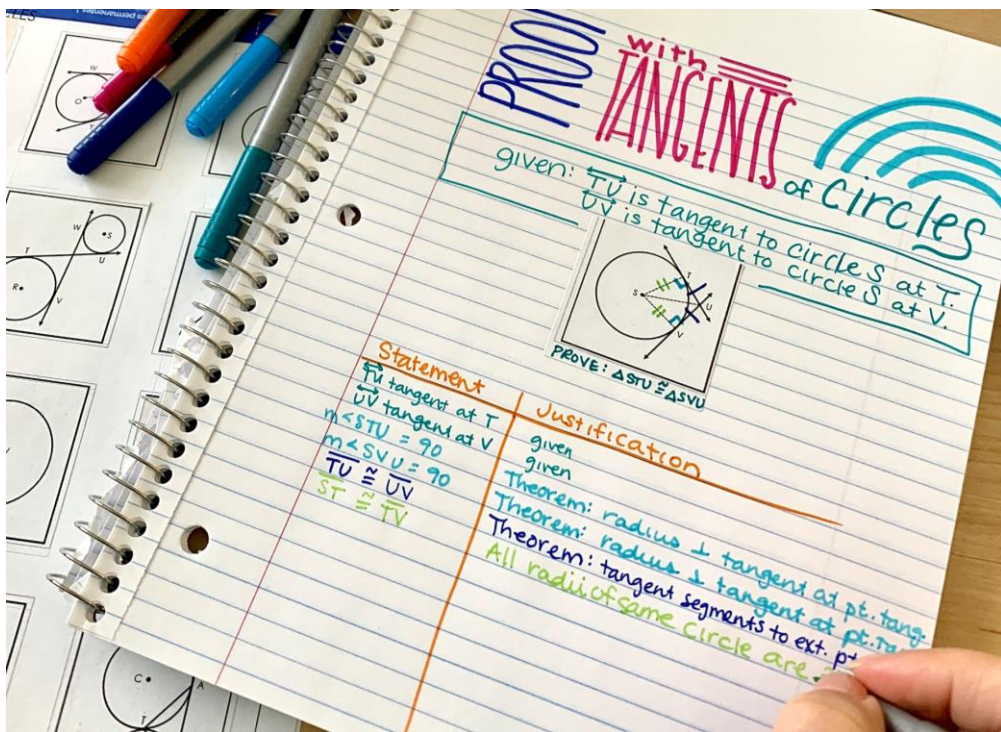 CLES
es permanentes!
PROOF
with
TANGENTS
of Circles
given: TU is tangent to circle S at T.
UV is tangent to circle S at V.
T
S
U
V
PROVE: △STU ≅ △SVU
Statement
Justification
TU tangent at T
given
UV tangent at V
given
m<STU = 90
Theorem: radius ⊥ tangent at pt. tang.
m<SVU = 90
Theorem: radius ⊥ tangent at pt. ta
TU ≅ UV
Theorem: tangent segments to ext. pt
ST ≅ TV
All radii of same circle are
W
O
W
S
T
U
R
V
C
A
T